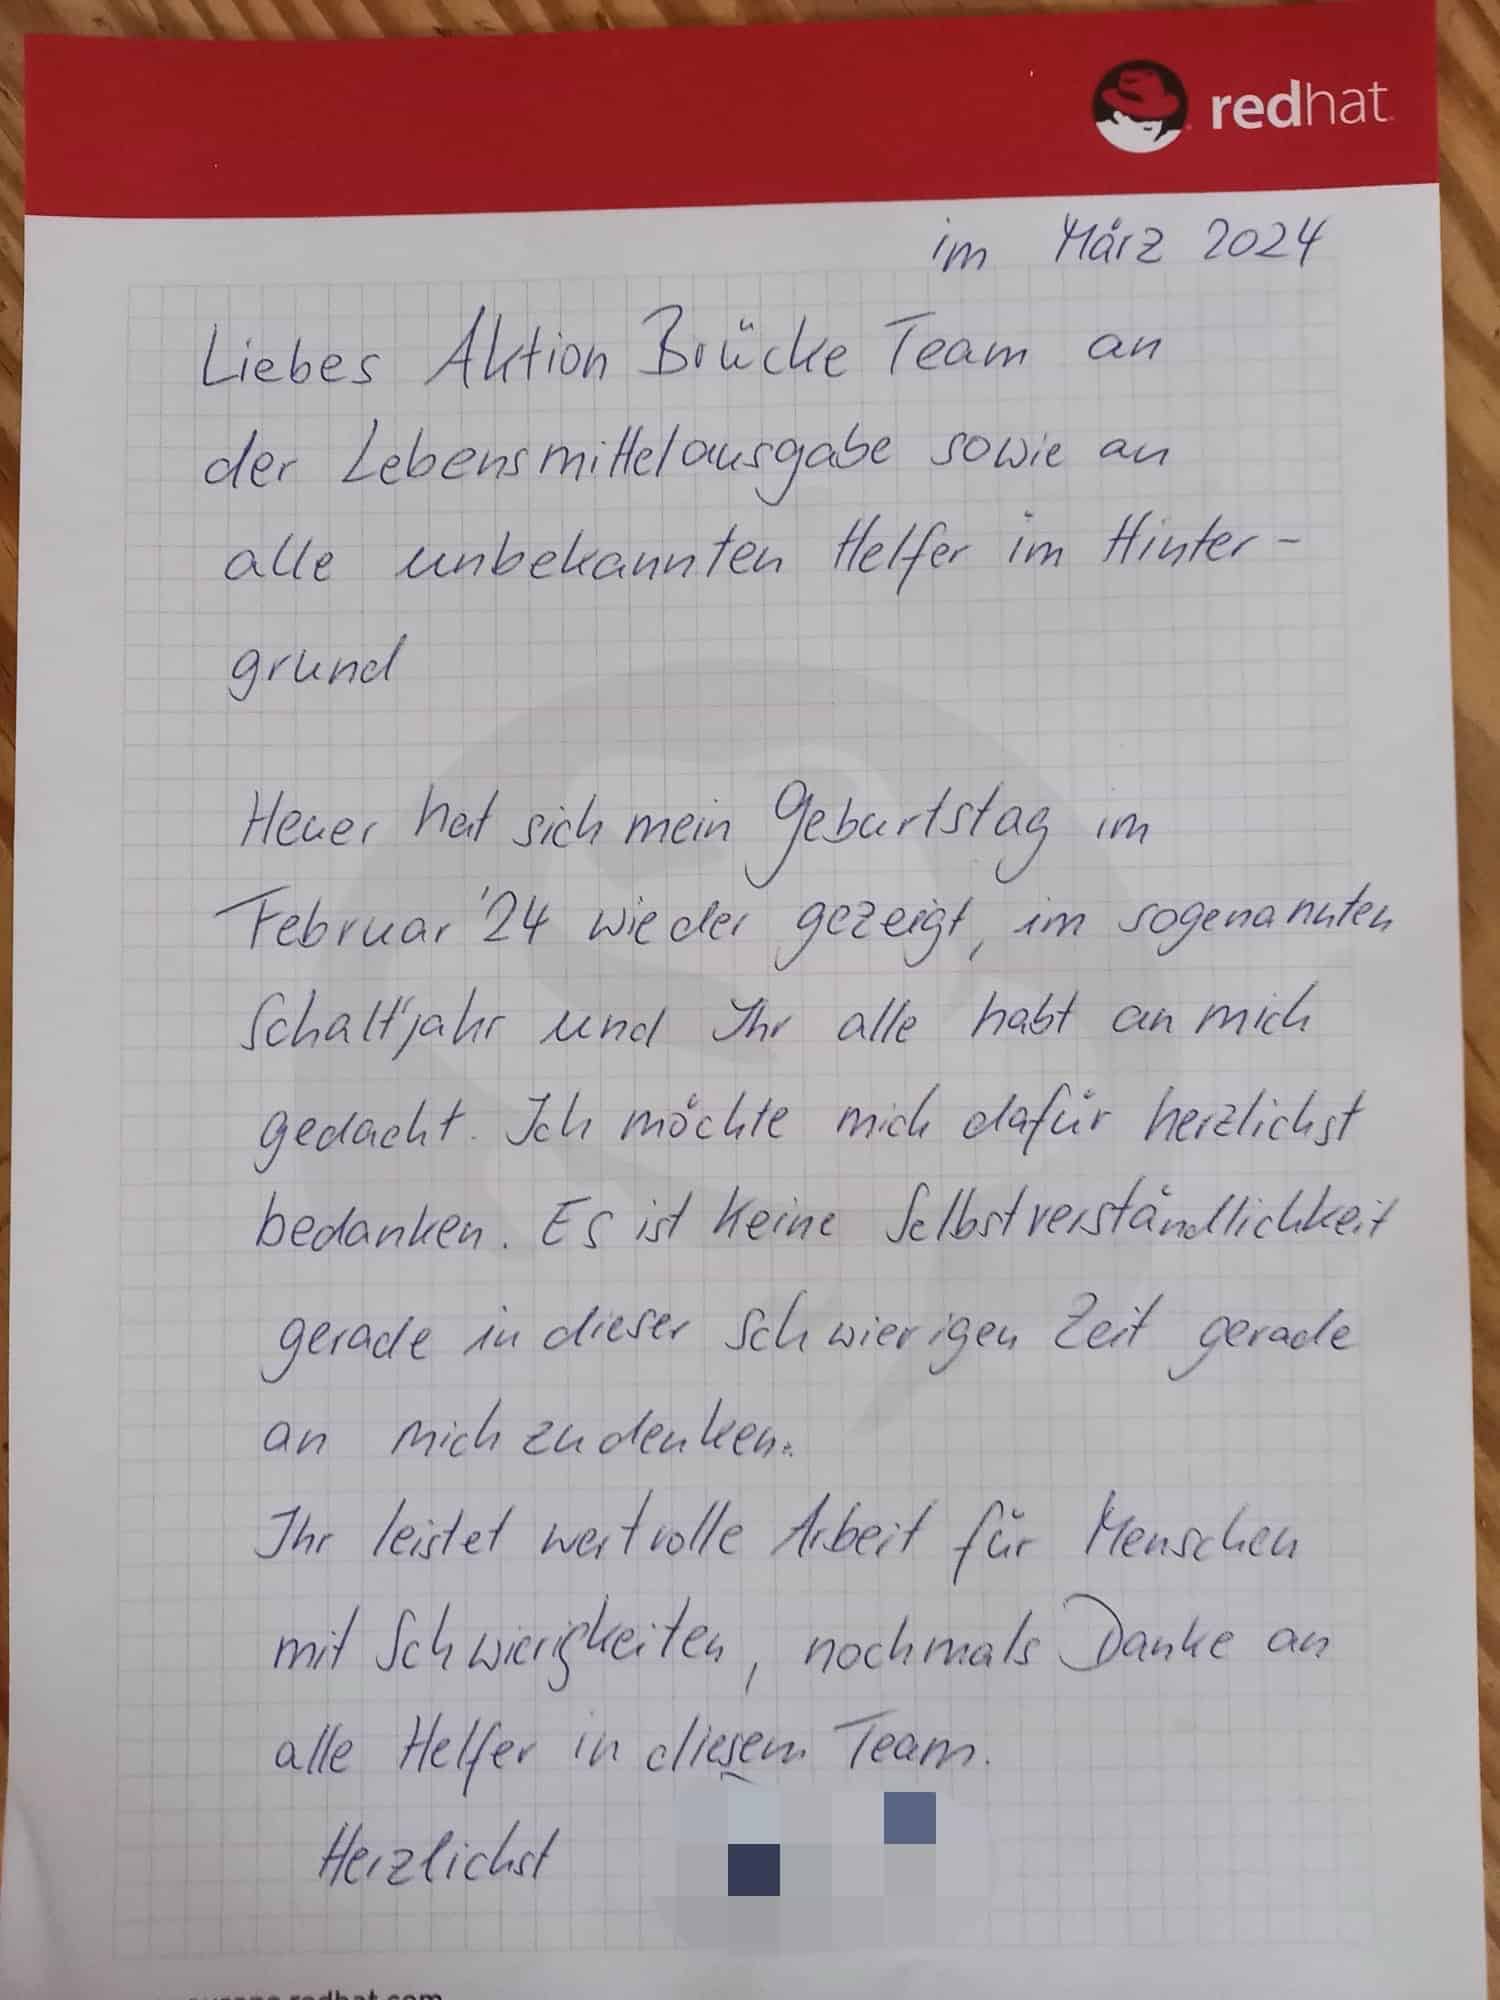 redhat
im März 2024
Liebes Aktion Brücke Team an
der Lebensmittelausgabe sowie an
alle unbekannten Helfer im Hinter-
grund
Heuer hat sich mein Geburtstag im
Februar '24 wieder gezeigt, im sogenannten
Schalt"jahr und Ihr alle habt an mich
gedacht. Ich möchte mich dafür herzlichst
bedanken. Es ist keine Selbstverständlichkeit
gerade in dieser schwierigen Zeit gerade
an mich zu denken.
Ihr leistet wertvolle Arbeit für Menschen
mit Schwierigkeiten, nochmals Danke an
alle Helfer in diesem Team.
Herzlichst
redhat.com